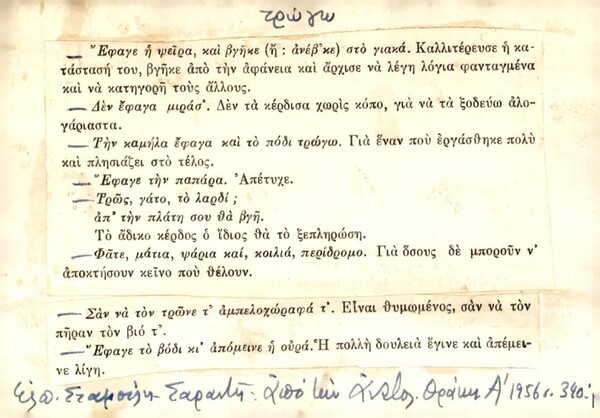 τρώγω
— Ἔφαγε ἡ ψεῖρα, καὶ βγῆκε (ἢ : ἀνέβ'κε) στὸ γιακά. Καλλιτέρευσε ἡ κα-
τάστασή του, βγῆκε ἀπὸ τὴν ἀφάνεια καὶ ἄρχισε νὰ λέγη λόγια φανταγμένα
καὶ νὰ κατηγορῆ τοὺς ἄλλους.
— Δὲν ἔφαγα μιράσ'. Δὲν τὰ κέρδισα χωρὶς κόπο, γιὰ νὰ τὰ ξοδεύω ἀλο-
γάριαστα.
— Τὴν καμήλα ἔφαγα καὶ τὸ πόδι τρώγω. Γιὰ ἕναν ποὺ ἐργάσθηκε πολὺ
καὶ πλησιάζει στὸ τέλος.
— Ἔφαγε τὴν παπάρα. Ἀπέτυχε.
— Τρῶς, γάτο, τὸ λαρδί ;
ἀπ' τὴν πλάτη σου θὰ βγῆ.
Τὸ ἄδικο κέρδος ὁ ἴδιος θὰ τὸ ξεπληρώση.
— Φᾶτε, μάτια, ψάρια καί, κοιλιά, περίδρομο. Γιὰ ὅσους δὲ μποροῦν ν'
ἀποκτήσουν κεῖνο ποὺ θέλουν.
— Σὰν νὰ τὸν τρῶνε τ' ἀμπελοχώραφά τ'. Εἶναι θυμωμένος, σὰν νὰ τὸν
πῆραν τὸν βιό τ'.
— Ἔφαγε τὸ βόδι κι' ἀπόμεινε ἡ οὐρά. Ἡ πολλὴ δουλειὰ ἔγινε καὶ ἀπέμει-
νε λίγη.
Σταμούλη Σαραντῆ: Ἀπὸ τὴν Θράκης Α' 1956 σ. 340